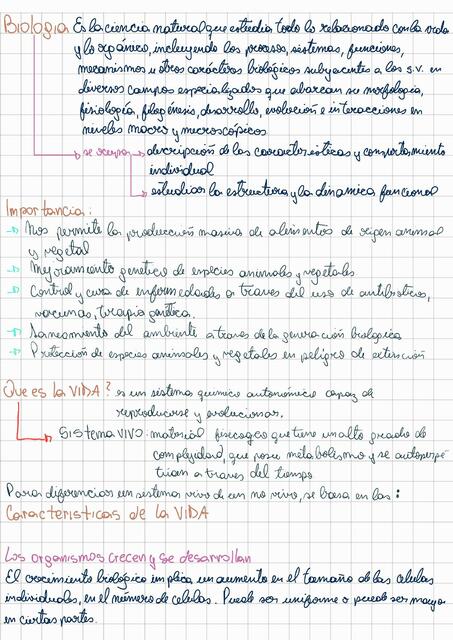 Biología Es la ciencia natural que estudia todo lo relacionado con la vida
y lo orgánico, incluyendo los procesos, sistemas, funciones,
mecanismos u otros carácteres biológicos subyacentes a los s.v. en
diversos campos especializados que abarcan su morfología,
fisiología, filogénesis, desarrollo, evolución e interacciones en
niveles macro y microscópicos
se ocupa → descripción de las características y comportamiento
individual
→ estudiar la estructura y la dinamica funcional
Importancia:
→ Nos permite la producción masiva de alimentos de origen animal
y vegetal
→ Mejoramiento genetico de especies animales y vegetales
→ Control y cura de enfermedades a traves del uso de antibioticos,
vacunas, terapia genética.
→ Saneamiento del ambiente a traves de la generación biologica
→ Protección de especies animales y vegetales en peligro de extinción
Que es la VIDA? es un sistema quimico autonómico capaz de
reproducirse y evolucionar.
SISTEMA VIVO: material que tiene un alto grado de
complejidad, que posee metabolismo y se autoperpe
tuan a traves del tiempo
Para diferenciar un sistema vivo de un no vivo, se basa en las:
Caracteristicas de la VIDA
Los organismos crecen y se desarrollan
El crecimiento biologico implica un aumento en el tamaño de las celulas
individuales, en el número de celulas. Puede ser uniforme o puede ser mayor
en ciertas partes.